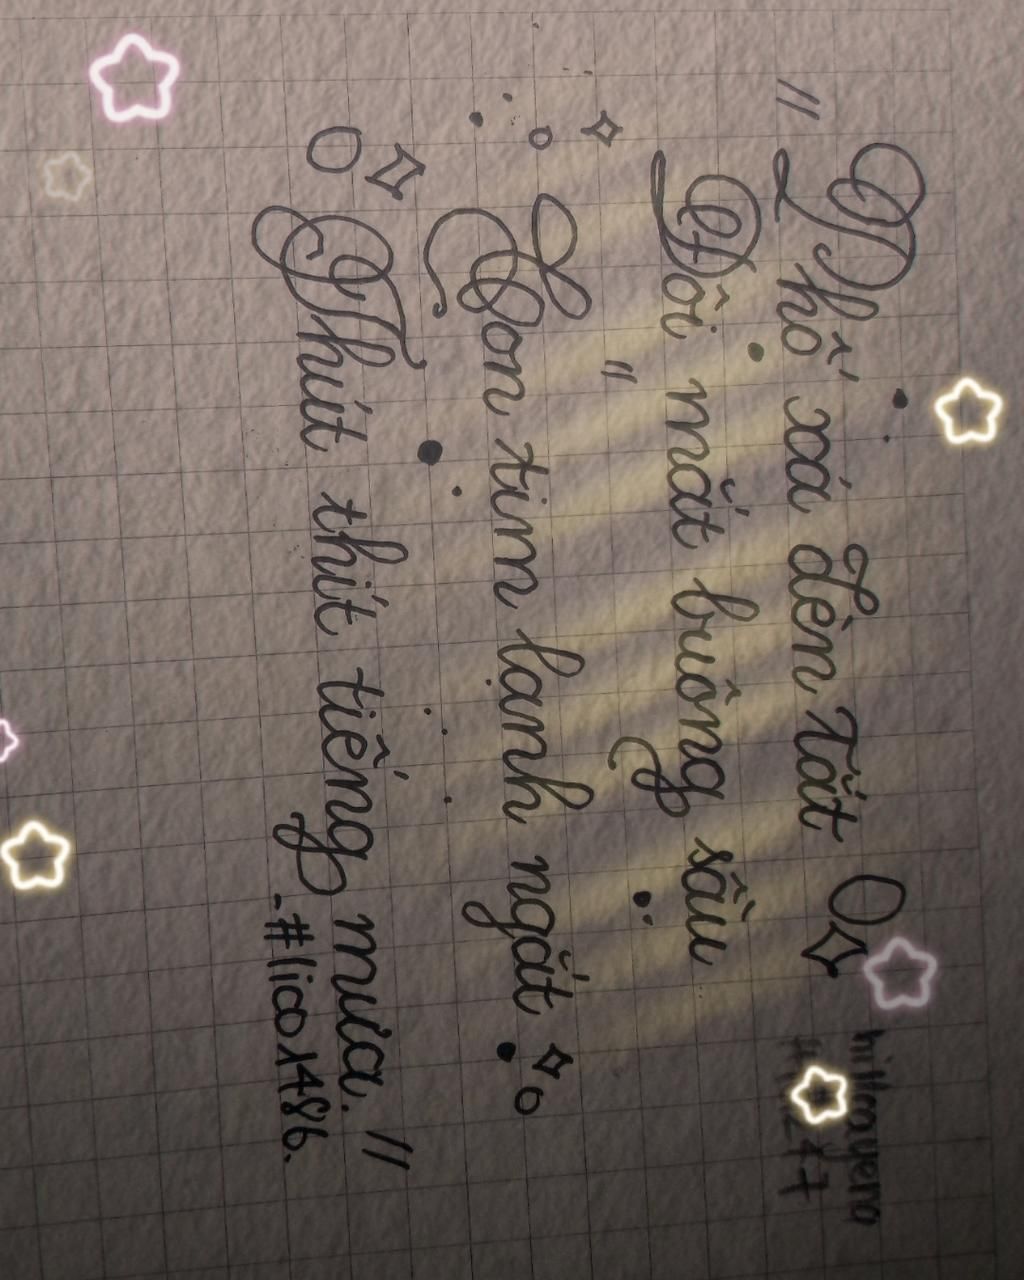 "Phố xá đèn tắt
Đôi mắt buông sầu "
Con tim lạnh ngắt
Thút thít tiếng mưa."
-#lico1486.